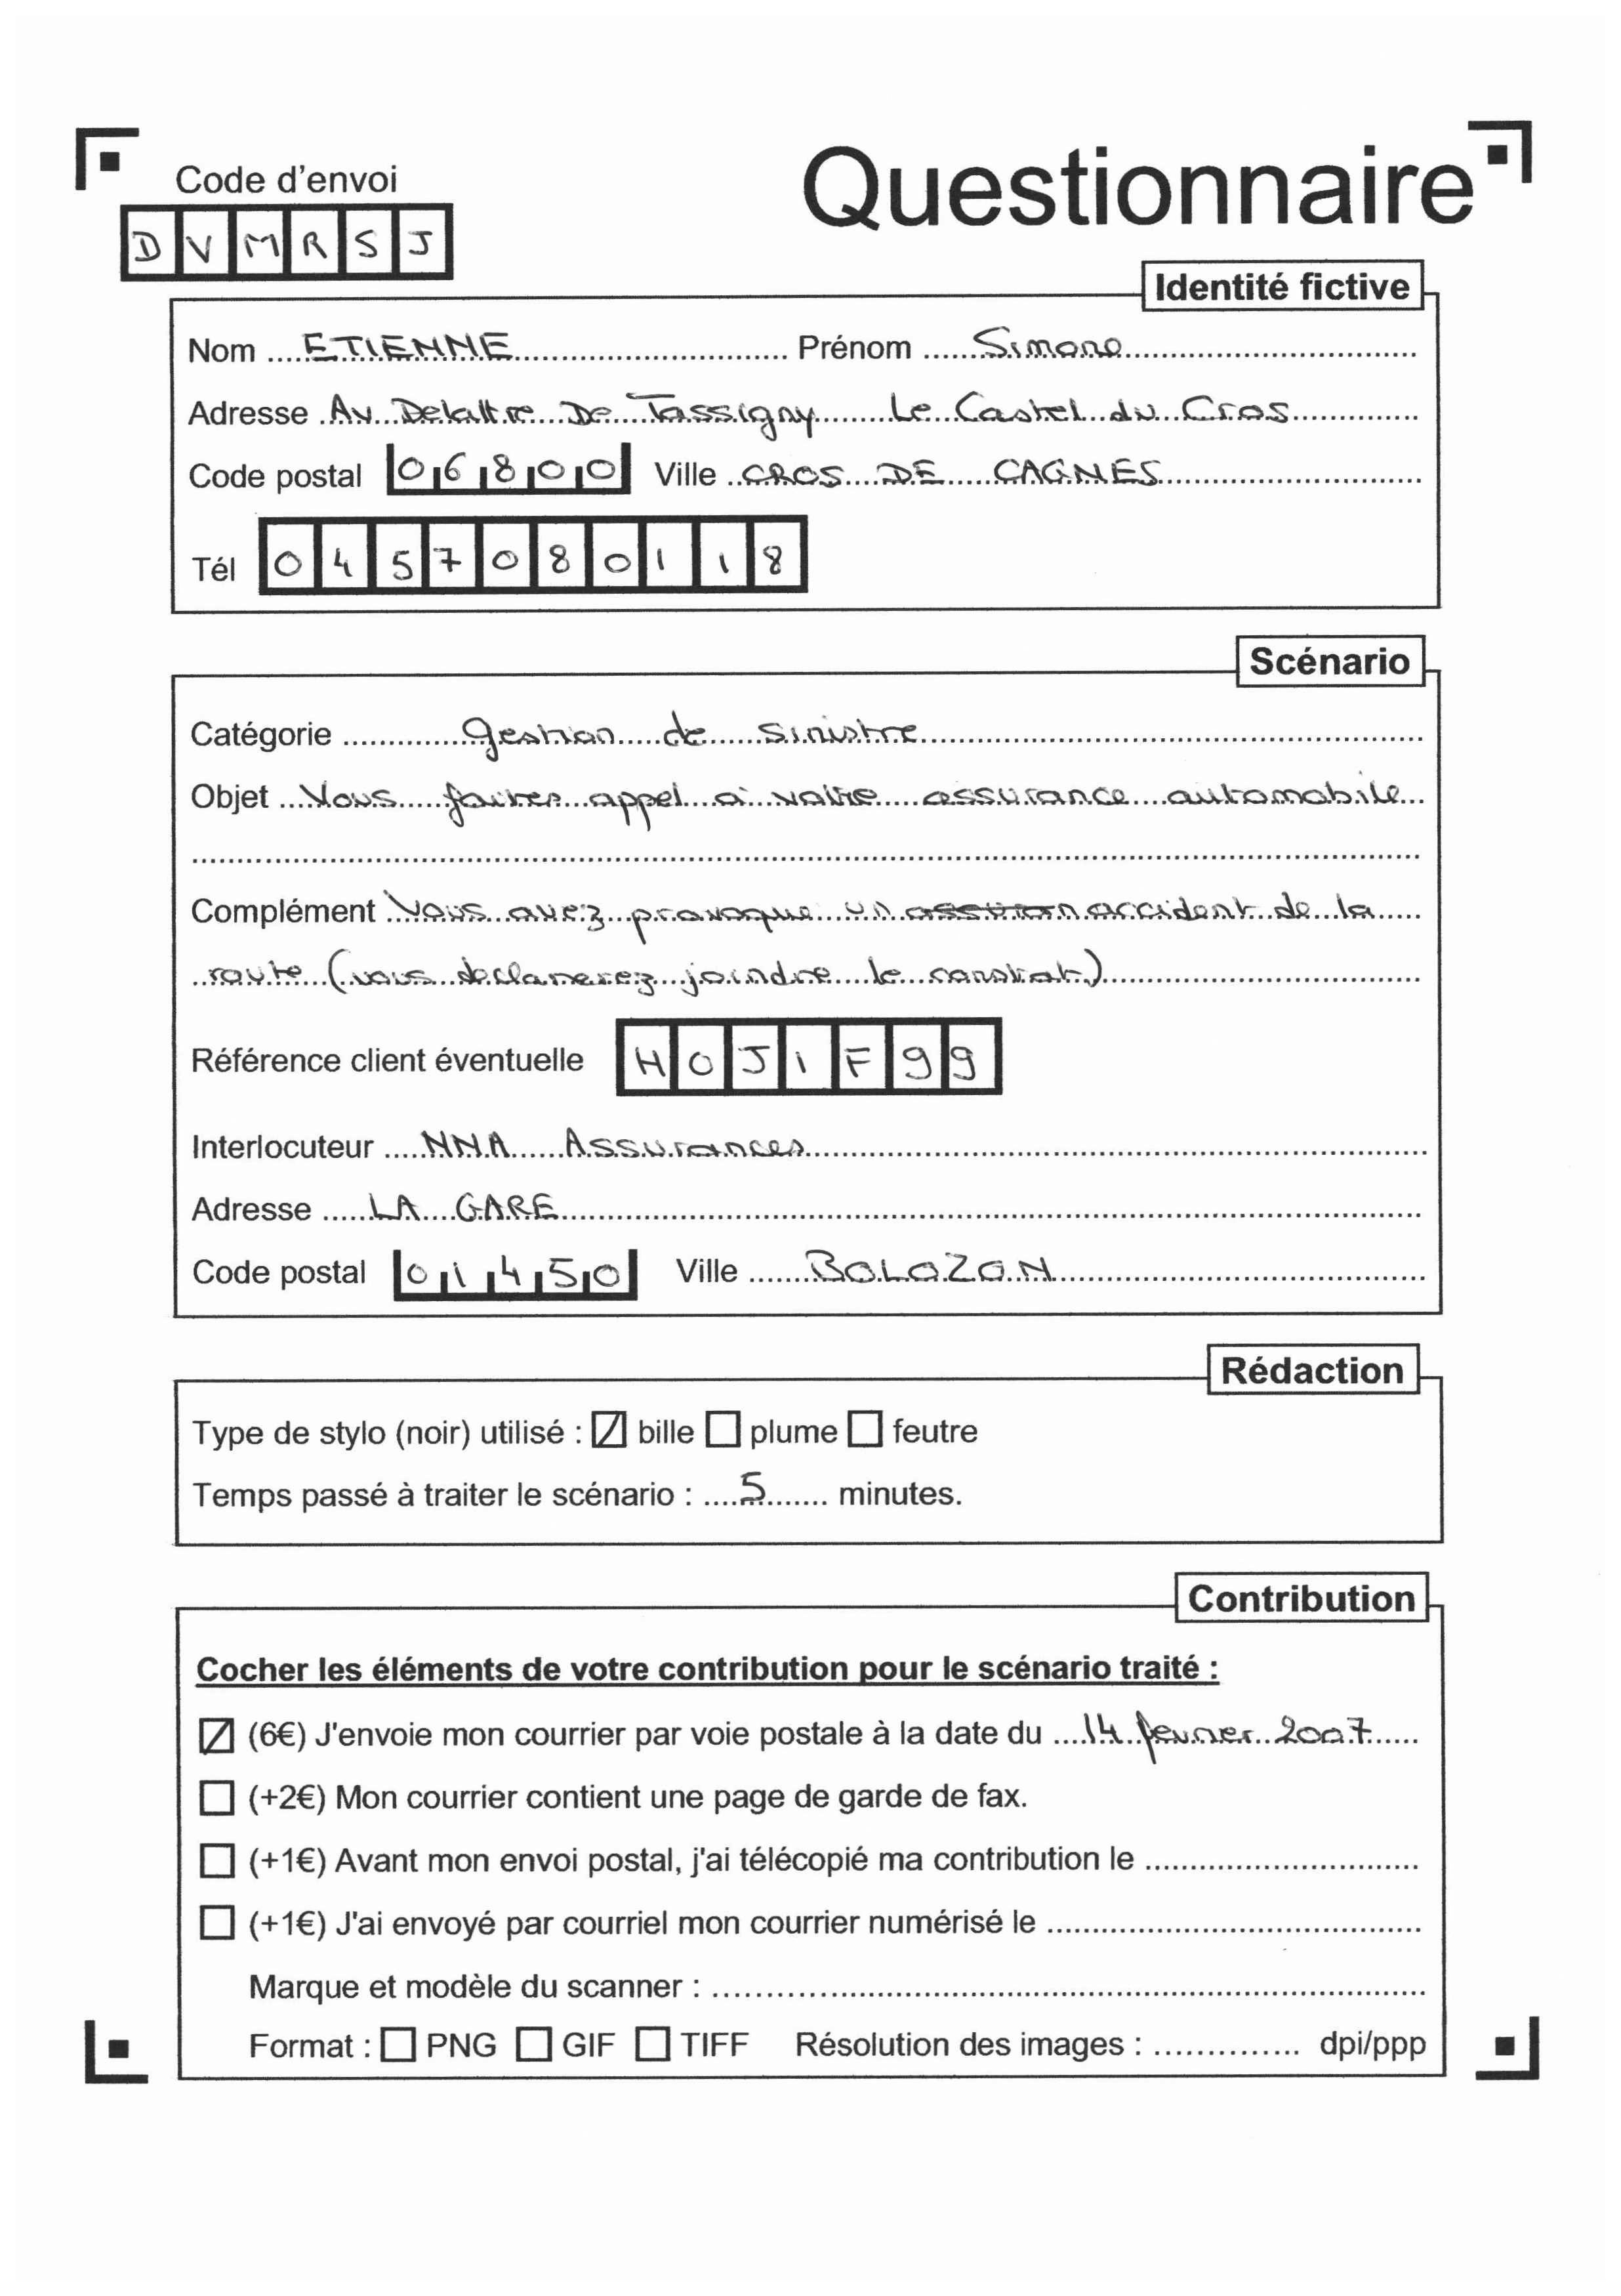 Code d'envoi
Questionnaire
D V M R S J
Identité fictive
Nom ETIENNE Prénom Simone
Adresse Av Delattre De Tassigny Le Castel du Cros
Code postal 06800 Ville CROS DE CAGNES
Tél 0457080118
Scénario
Catégorie gestion de sinistre
Objet Vous faites appel à votre assurance automobile
Complément Vous avez provoque un accident de la
route (vous declarerez joindre le constat)
Référence client éventuelle HOJIF99
Interlocuteur NNA Assurances
Adresse LA GARE
Code postal 01450 Ville BOLOZON
Rédaction
Type de stylo (noir) utilisé : bille plume feutre
Temps passé à traiter le scénario : 5 minutes.
Contribution
Cocher les éléments de votre contribution pour le scénario traité :
(6€) J'envoie mon courrier par voie postale à la date du 14 fevrier 2007
(+2€) Mon courrier contient une page de garde de fax.
(+1€) Avant mon envoi postal, j'ai télécopié ma contribution le
(+1€) J'ai envoyé par courriel mon courrier numérisé le
Marque et modèle du scanner :
Format : PNG GIF TIFF Résolution des images : dpi/ppp